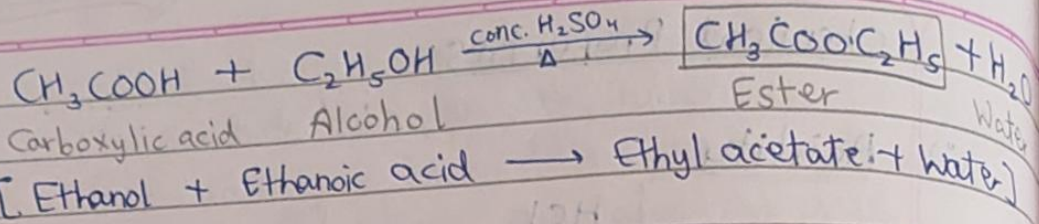 CH₃COOH + C₂H₅OH conc. H₂SO₄ → Δ CH₃COO·C₂H₅ + H₂O
Carboxylic acid Alcohol Ester Water
[Ethanol + Ethanoic acid → Ethyl acetate + Water]